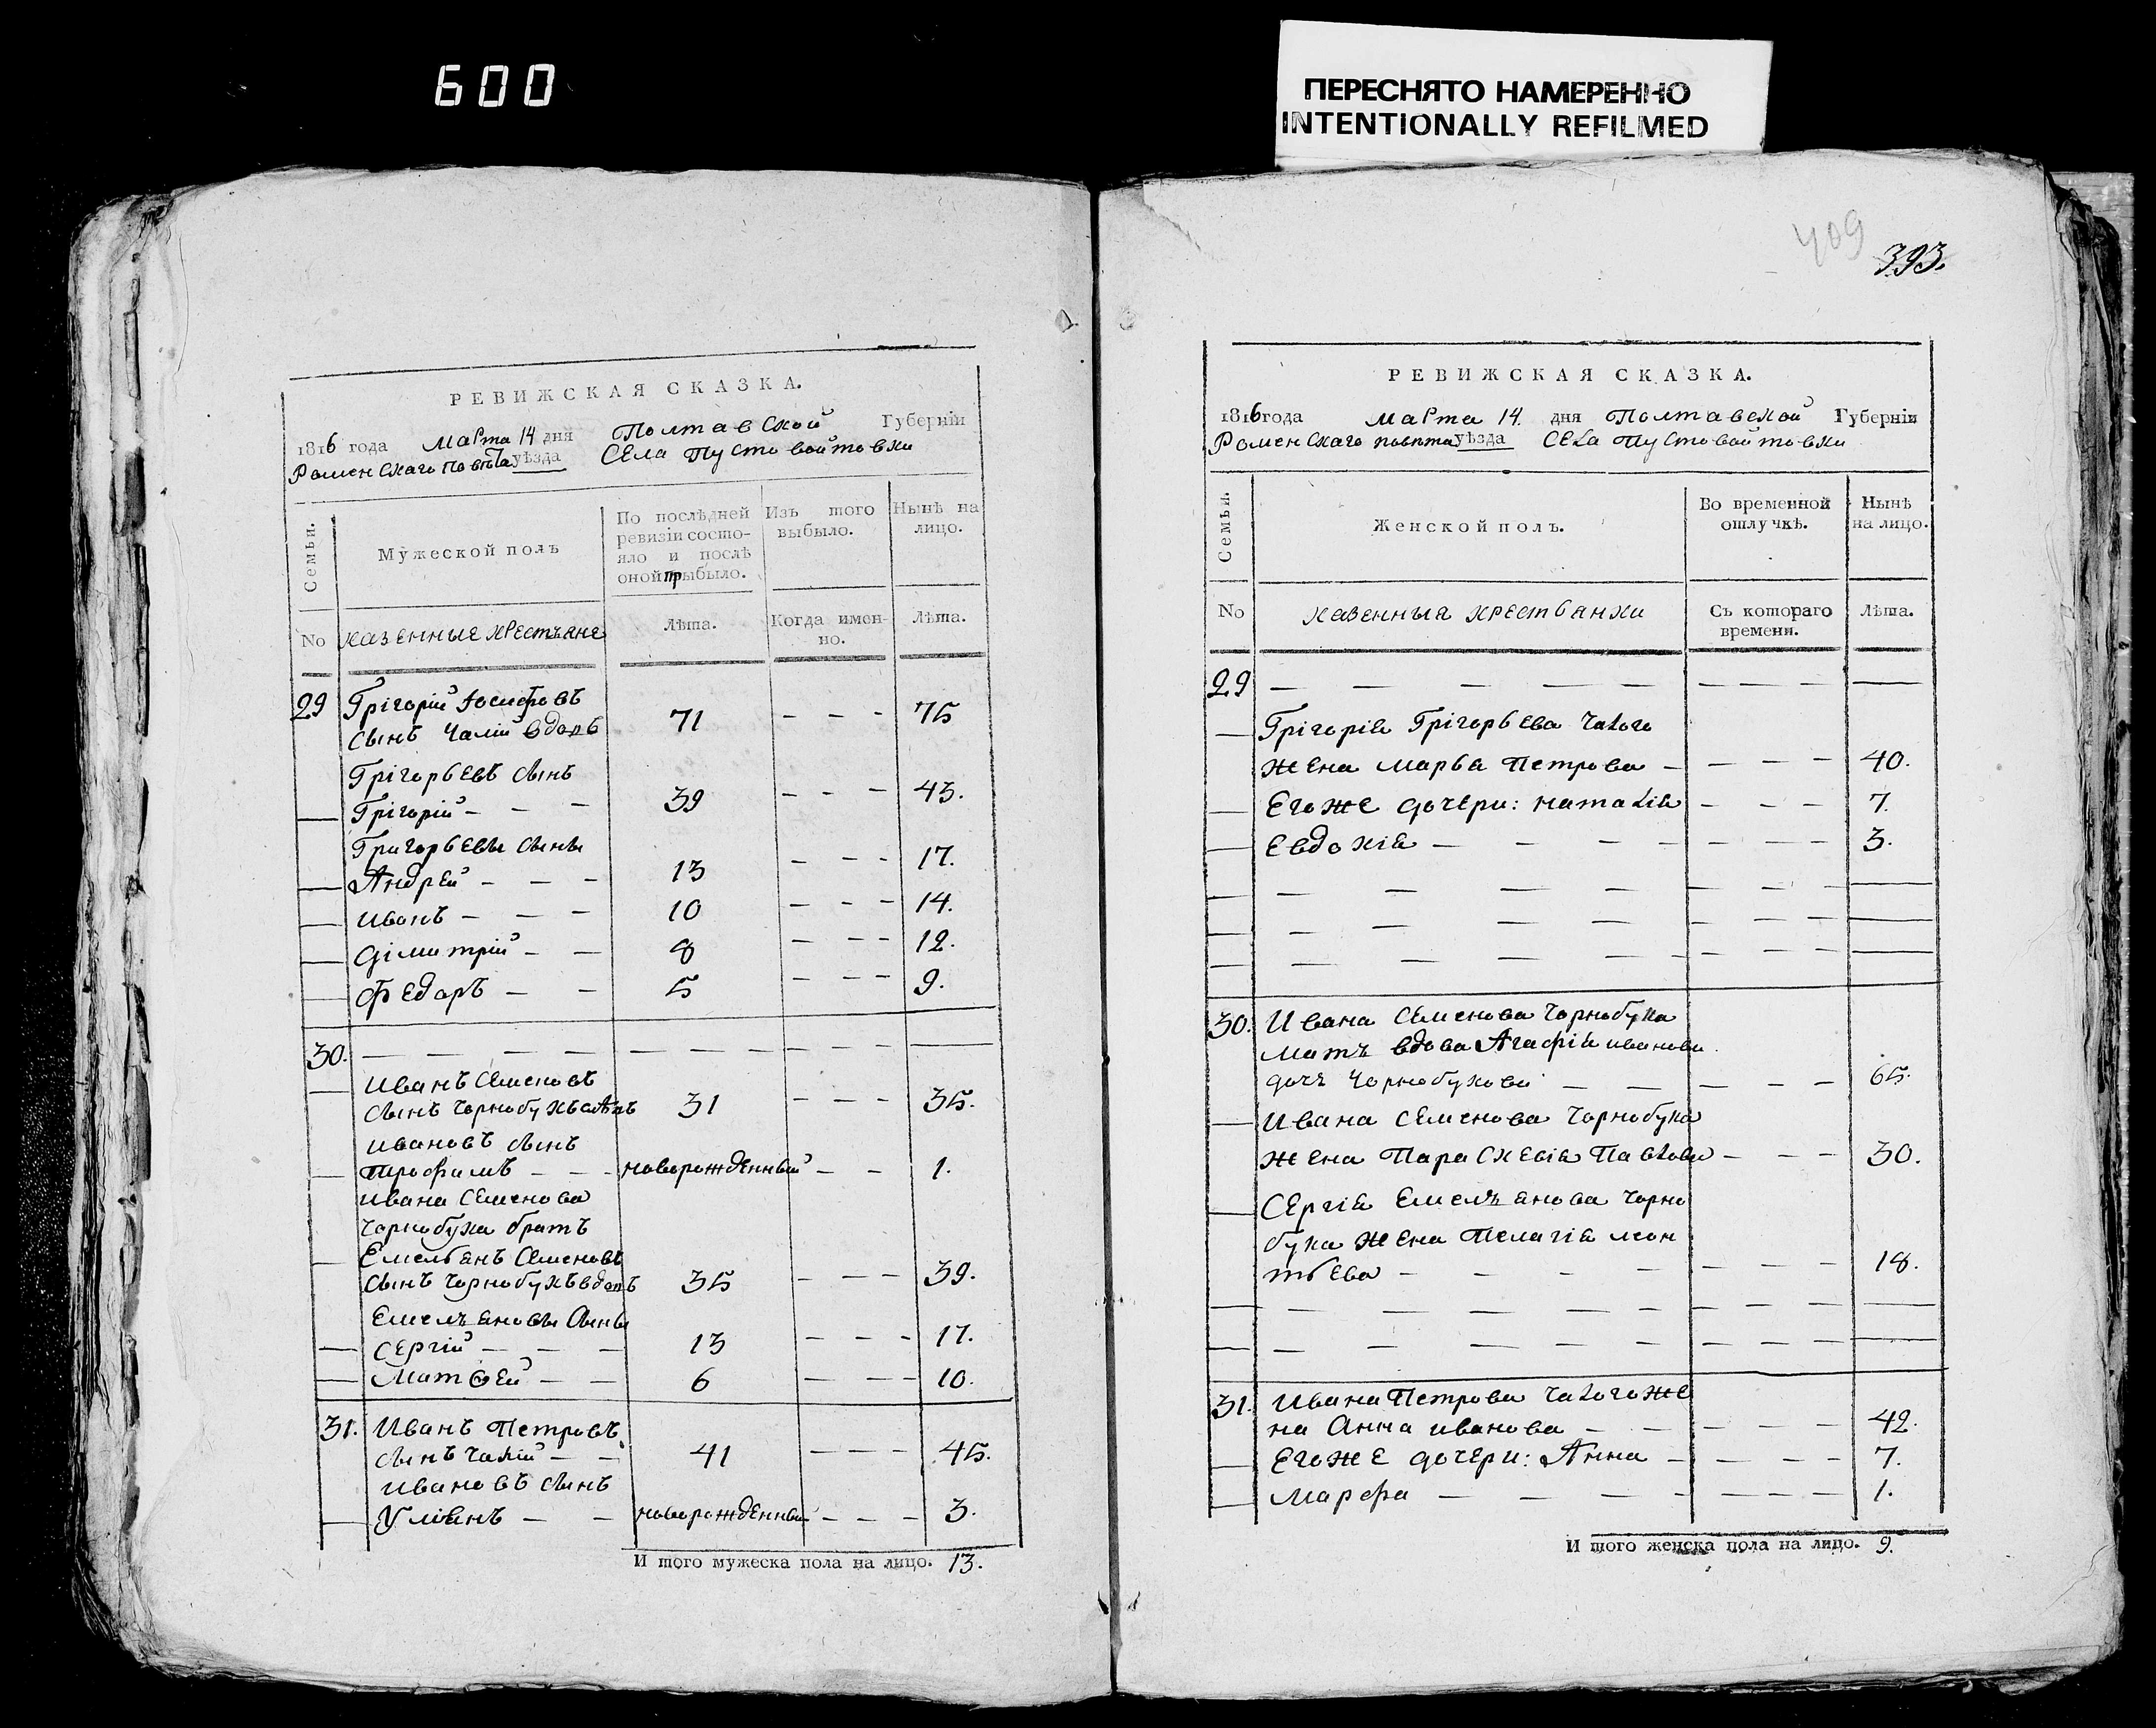 600
ПЕРЕСНЯТО НАМЕРЕННО
INTENTIONALLY REFILMED
РЕВИЖСКАЯ СКАЗКА.
1816 года марта 14 дня Полтавской Губерніи
Роменскаго повѣта уѣзда села Пустовойтовки
Семьи.
Мужеской полъ
По послѣдней
ревизіи состо-
яло и послѣ
оной прибыло.
Изъ того
выбыло.
Нынѣ на
лицо.
No казенные крестьяне Лѣта. Когда имен-
но. Лѣта.
29 Григорій Іосифовъ
сынъ Чалій вдовъ 71 - - - 75
Григорьевъ сынъ
Григорій - - - 39 - - - 43.
Григорьевы сыны
Андрей - - - 13 - - - 17.
Иванъ - - - 10 - - - 14.
Діммитрій - - 8 - - - 12.
Федоръ - - 5 - - - 9.
30. — — — — — — — — — — —
Иванъ Семеновъ
сынъ Чорнобукъ 31 - - - 35.
Ивановъ сынъ
Трофимъ - - - новорожденный - - 1.
Ивана Семенова
Чорнобука братъ
Емельянъ Семеновъ
сынъ Чорнобукъ вдовъ 35 - - - 39.
Емельяновы сыны
Сергій - - - 13 - - - 17.
Матѳей - - 6 - - - 10.
31. Иванъ Петровъ
сынъ Чалій - - 41 - - - 45.
Ивановъ сынъ
Уліянъ - - новорожденный - - - 3.
И того мужеска пола на лицо. 13.
409
393.
РЕВИЖСКАЯ СКАЗКА.
1816 года марта 14. дня Полтавской Губерніи
Роменскаго повѣта уѣзда села Пустовойтовки
Семьи.
Женской полъ.
Во временной
отлучкѣ.
Нынѣ
на лицо.
No казенныя крестьянки Съ котораго
времени. Лѣта.
29 — — — — — — — — —
Григорія Григорьева Чалого
жена Марья Петрова - - - - 40.
Егоже дочери: Наталія - - - 7.
Евдокія - - - - - - - 3.
30. Ивана Семенова Чорнобука
мать вдова Агафія Иванова
дочь Чорнобукова - - - - - 65.
Ивана Семенова Чорнобука
жена Параскевія Павлова - - - 30.
Сергія Емельянова Чорно
бука жена Пелагія Леон
тьева - - - - - - - 18.
31. Ивана Петрова Чалого же
на Анна Иванова - - - - - 42.
Егоже дочери: Анна - - - - 7.
Марфа - - - - - - - 1.
И того женска пола на лицо. 9.